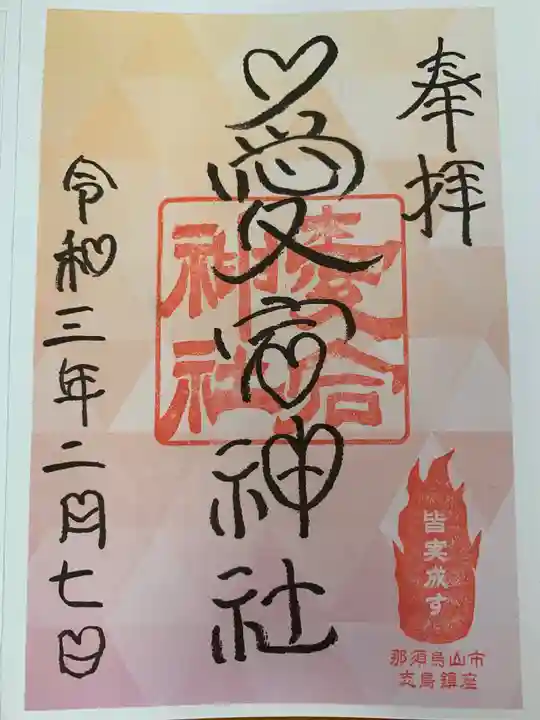 奉拝
愛宕神社
神社
令和三年二月七日
皆実成す
那須烏山市
志鳥鎮座